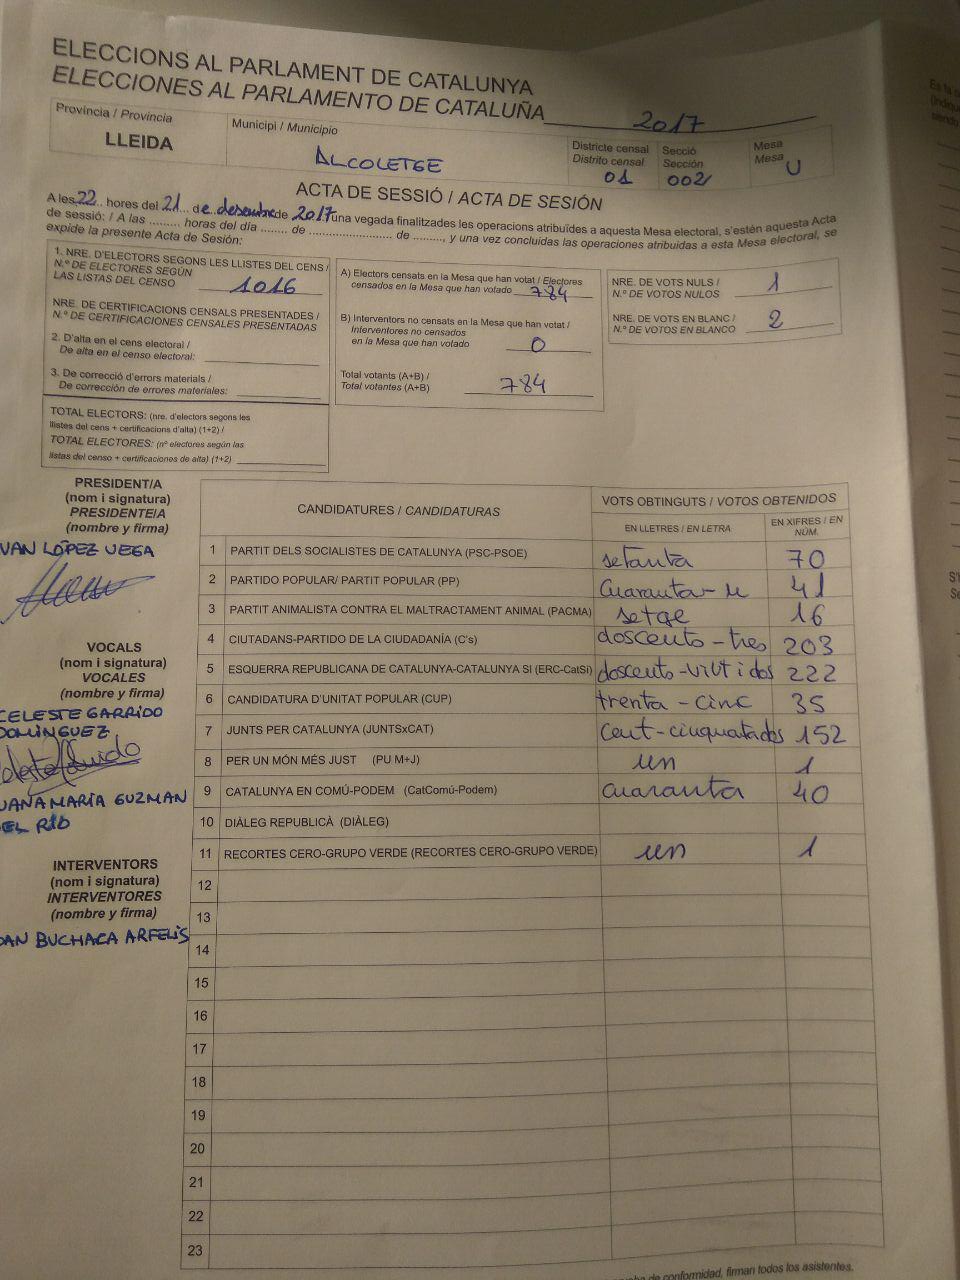 ELECCIONS AL PARLAMENT DE CATALUNYA
ELECCIONES AL PARLAMENTO DE CATALUÑA 2017
Província / Provincia
LLEIDA
Municipi / Municipio
ALCOLETGE
Districte censal
Distrito censal
01
Secció
Sección
002
Mesa
Mesa
U
ACTA DE SESSIÓ / ACTA DE SESIÓN
A les 22 hores del 21 de desembre de 2017 una vegada finalitzades les operacions atribuïdes a aquesta Mesa electoral, s'estén aquesta Acta
de sessió: / A las ......... horas del día ........ de ........................ de ........., y una vez concluidas las operaciones atribuidas a esta Mesa electoral, se
expide la presente Acta de Sesión:
1. NRE. D'ELECTORS SEGONS LES LLISTES DEL CENS /
N.º DE ELECTORES SEGÚN
LAS LISTAS DEL CENSO 1016
NRE. DE CERTIFICACIONS CENSALS PRESENTADES /
N.º DE CERTIFICACIONES CENSALES PRESENTADAS
2. D'alta en el cens electoral /
De alta en el censo electoral:
3. De correcció d'errors materials /
De corrección de errores materiales:
TOTAL ELECTORS: (nre. d'electors segons les
llistes del cens + certificacions d'alta) (1+2) /
TOTAL ELECTORES: (nº electores según las
listas del censo + certificaciones de alta) (1+2)
A) Electors censats en la Mesa que han votat / Electores
censados en la Mesa que han votado 784
B) Interventors no censats en la Mesa que han votat /
Interventores no censados
en la Mesa que han votado 0
Total votants (A+B) /
Total votantes (A+B) 784
NRE. DE VOTS NULS /
N.º DE VOTOS NULOS 1
NRE. DE VOTS EN BLANC /
N.º DE VOTOS EN BLANCO 2
PRESIDENT/A
(nom i signatura)
PRESIDENTE/A
(nombre y firma)
VAN LÓPEZ VEGA
VOCALS
(nom i signatura)
VOCALES
(nombre y firma)
CELESTE GARRIDO
DOMINGUEZ
UANA MARÍA GUZMAN
EL RÍO
INTERVENTORS
(nom i signatura)
INTERVENTORES
(nombre y firma)
OAN BUCHACA ARFELIS
CANDIDATURES / CANDIDATURAS
VOTS OBTINGUTS / VOTOS OBTENIDOS
EN LLETRES / EN LETRA
EN XIFRES / EN NÚM.
1 PARTIT DELS SOCIALISTES DE CATALUNYA (PSC-PSOE) setanta 70
2 PARTIDO POPULAR/ PARTIT POPULAR (PP) Cuaranta-u 41
3 PARTIT ANIMALISTA CONTRA EL MALTRACTAMENT ANIMAL (PACMA) setge 16
4 CIUTADANS-PARTIDO DE LA CIUDADANÍA (C's) doscents-tres 203
5 ESQUERRA REPUBLICANA DE CATALUNYA-CATALUNYA SI (ERC-CatSí) doscents-vint i dos 222
6 CANDIDATURA D'UNITAT POPULAR (CUP) trenta-cinc 35
7 JUNTS PER CATALUNYA (JUNTSxCAT) Cent-cinquatados 152
8 PER UN MÓN MÉS JUST (PU M+J) un 1
9 CATALUNYA EN COMÚ-PODEM (CatComú-Podem) cuaranta 40
10 DIÀLEG REPUBLICÀ (DIÀLEG)
11 RECORTES CERO-GRUPO VERDE (RECORTES CERO-GRUPO VERDE) un 1
12
13
14
15
16
17
18
19
20
21
22
23
de conformidad, firman todos los asistentes.